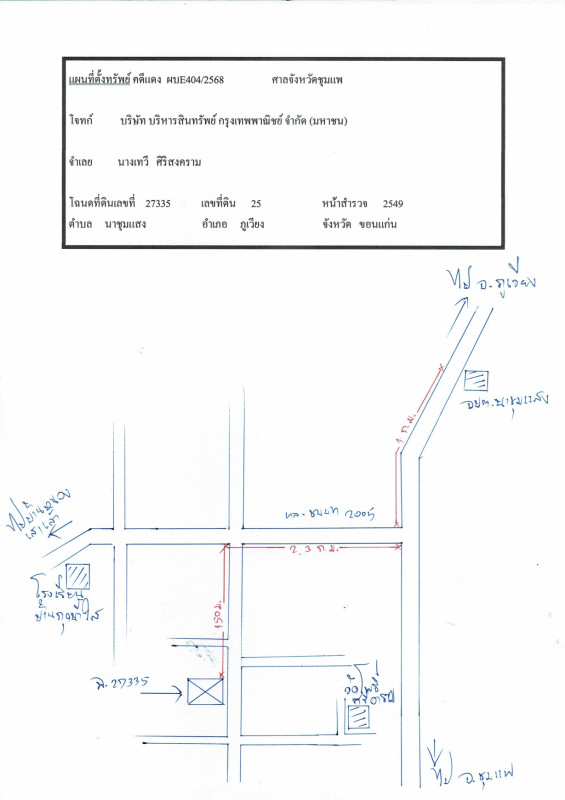 แผนที่ตั้งทรัพย์ คดีแดง ผบE404/2568 ศาลจังหวัดชุมแพ
โจทก์ บริษัท บริหารสินทรัพย์ กรุงเทพพาณิชย์ จำกัด (มหาชน)
จำเลย นางเทวี ศิริสงคราม
โฉนดที่ดินเลขที่ 27335 เลขที่ดิน 25 หน้าสำรวจ 2549
ตำบล นาชุมแสง อำเภอ ภูเวียง จังหวัด ขอนแก่น
ไป อ.ภูเวียง
อบต.นาชุมแสง
1 ก.ม.
ทล.ชนบท 2005
2.3 ก.ม.
ไปบ้าน
เสาเล้า
โรงเรียน
150 ม.
ฉ.27335
วัด
ไป อ.ชุมแพ